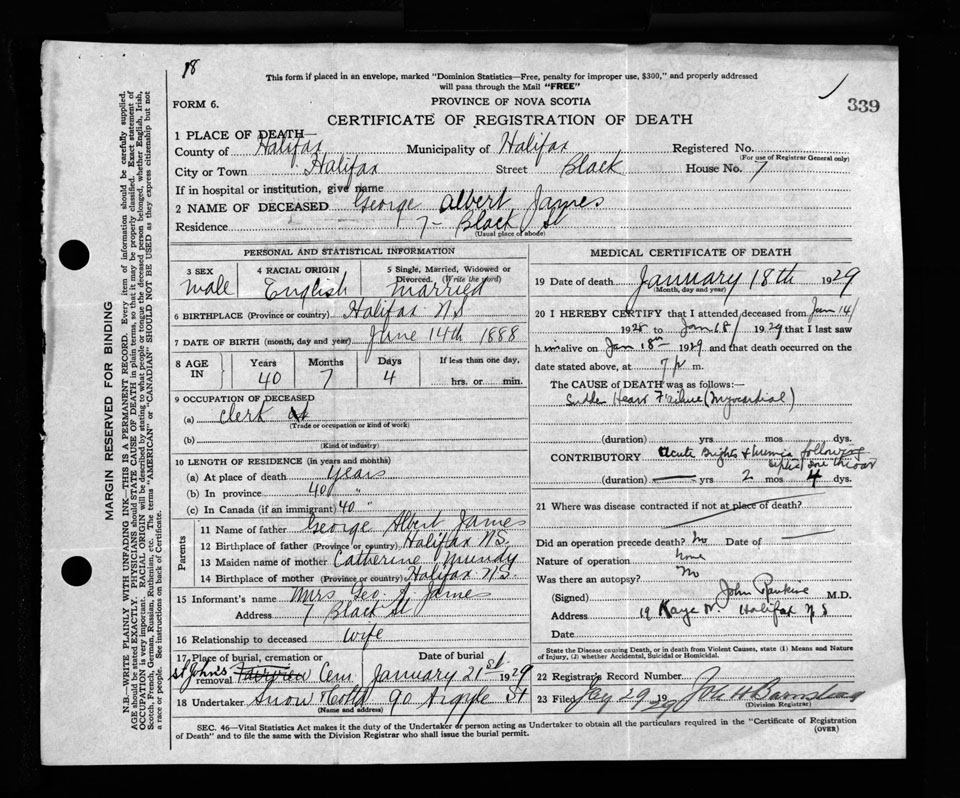 18
This form if placed in an envelope, marked "Dominion Statistics—Free, penalty for improper use, $300," and properly addressed
will pass through the Mail "FREE"
339
FORM 6.
PROVINCE OF NOVA SCOTIA
CERTIFICATE OF REGISTRATION OF DEATH
1 PLACE OF DEATH—
County of Halifax Municipality of Halifax Registered No.
(For use of Registrar General only)
City or Town Halifax Street Black House No. 7
If in hospital or institution, give name
2 NAME OF DECEASED George Albert James
Residence 7- Black St
(Usual place of abode)
PERSONAL AND STATISTICAL INFORMATION
3 SEX
male
4 RACIAL ORIGIN
English
5 Single, Married, Widowed or
Divorced. (Write the word)
married
6 BIRTHPLACE (Province or country) Halifax N S
7 DATE OF BIRTH (month, day and year) June 14th 1888
8 AGE IN
Years 40
Months 7
Days 4
If less than one day,
hrs. or min.
9 OCCUPATION OF DECEASED
(a) clerk
(Trade or occupation or kind of work)
(b)
(Kind of industry)
10 LENGTH OF RESIDENCE (in years and months)
(a) At place of death years
(b) In province 40 "
(c) In Canada (if an immigrant) 40 "
Parents
11 Name of father George Albert James
12 Birthplace of father (Province or country) Halifax N.S.
13 Maiden name of mother Catherine Mundy
14 Birthplace of mother (Province or country) Halifax N.S.
15 Informant's name Mrs Geo. A. James
Address 7 Black St
16 Relationship to deceased wife
17 Place of burial, cremation or
removal St John's Fairview Cem
Date of burial
January 21st 1929
18 Undertaker Snow & Co Ltd 90 Argyle St
(Name and address)
MEDICAL CERTIFICATE OF DEATH
19 Date of death January 18th 1929
(Month, day and year)
20 I HEREBY CERTIFY that I attended deceased from Jan 14/
1928 to Jan 18/ 1929 that I last saw
him alive on Jan 18th 1929 and that death occurred on the
date stated above, at 7 p m.
The CAUSE of DEATH was as follows:—
Sudden Heart Failure (Myocardial)
(duration) yrs mos dys.
CONTRIBUTORY acute Brights & uremia following
septic sore throat
(duration) — yrs 2 mos 4 dys.
21 Where was disease contracted if not at place of death?
Did an operation precede death? No Date of —
Nature of operation None
Was there an autopsy? No
(Signed) John Rankine M.D.
Address 19 Kaye St Halifax N S
Date
State the Disease causing Death, or in death from Violent Causes, state (1) Means and Nature
of Injury, (2) whether Accidental, Suicidal or Homicidal.
22 Registrar's Record Number
23 Filed 29 1929 John H Barnstead
(Division Registrar)
SEC. 46—Vital Statistics Act makes it the duty of the Undertaker or person acting as Undertaker to obtain all the particulars required in the "Certificate of Registration
of Death" and to file the same with the Division Registrar who shall issue the burial permit.
(OVER)
MARGIN RESERVED FOR BINDING
N.B.—WRITE PLAINLY WITH UNFADING INK—THIS IS A PERMANENT RECORD. Every item of information should be carefully supplied.
AGE should be stated EXACTLY. PHYSICIANS should STATE CAUSE OF DEATH in plain terms, so that it may be properly classified. Exact statement of
OCCUPATION is very important. RACIAL ORIGIN will be described by stating to what people or tongue the deceased person belonged, whether English, Irish,
Scotch, French, German, Russian, Ruthenian, etc. The terms "AMERICAN" or "CANADIAN" SHOULD NOT BE USED as they express citizenship but not
a race or people. See instructions on back of Certificate.